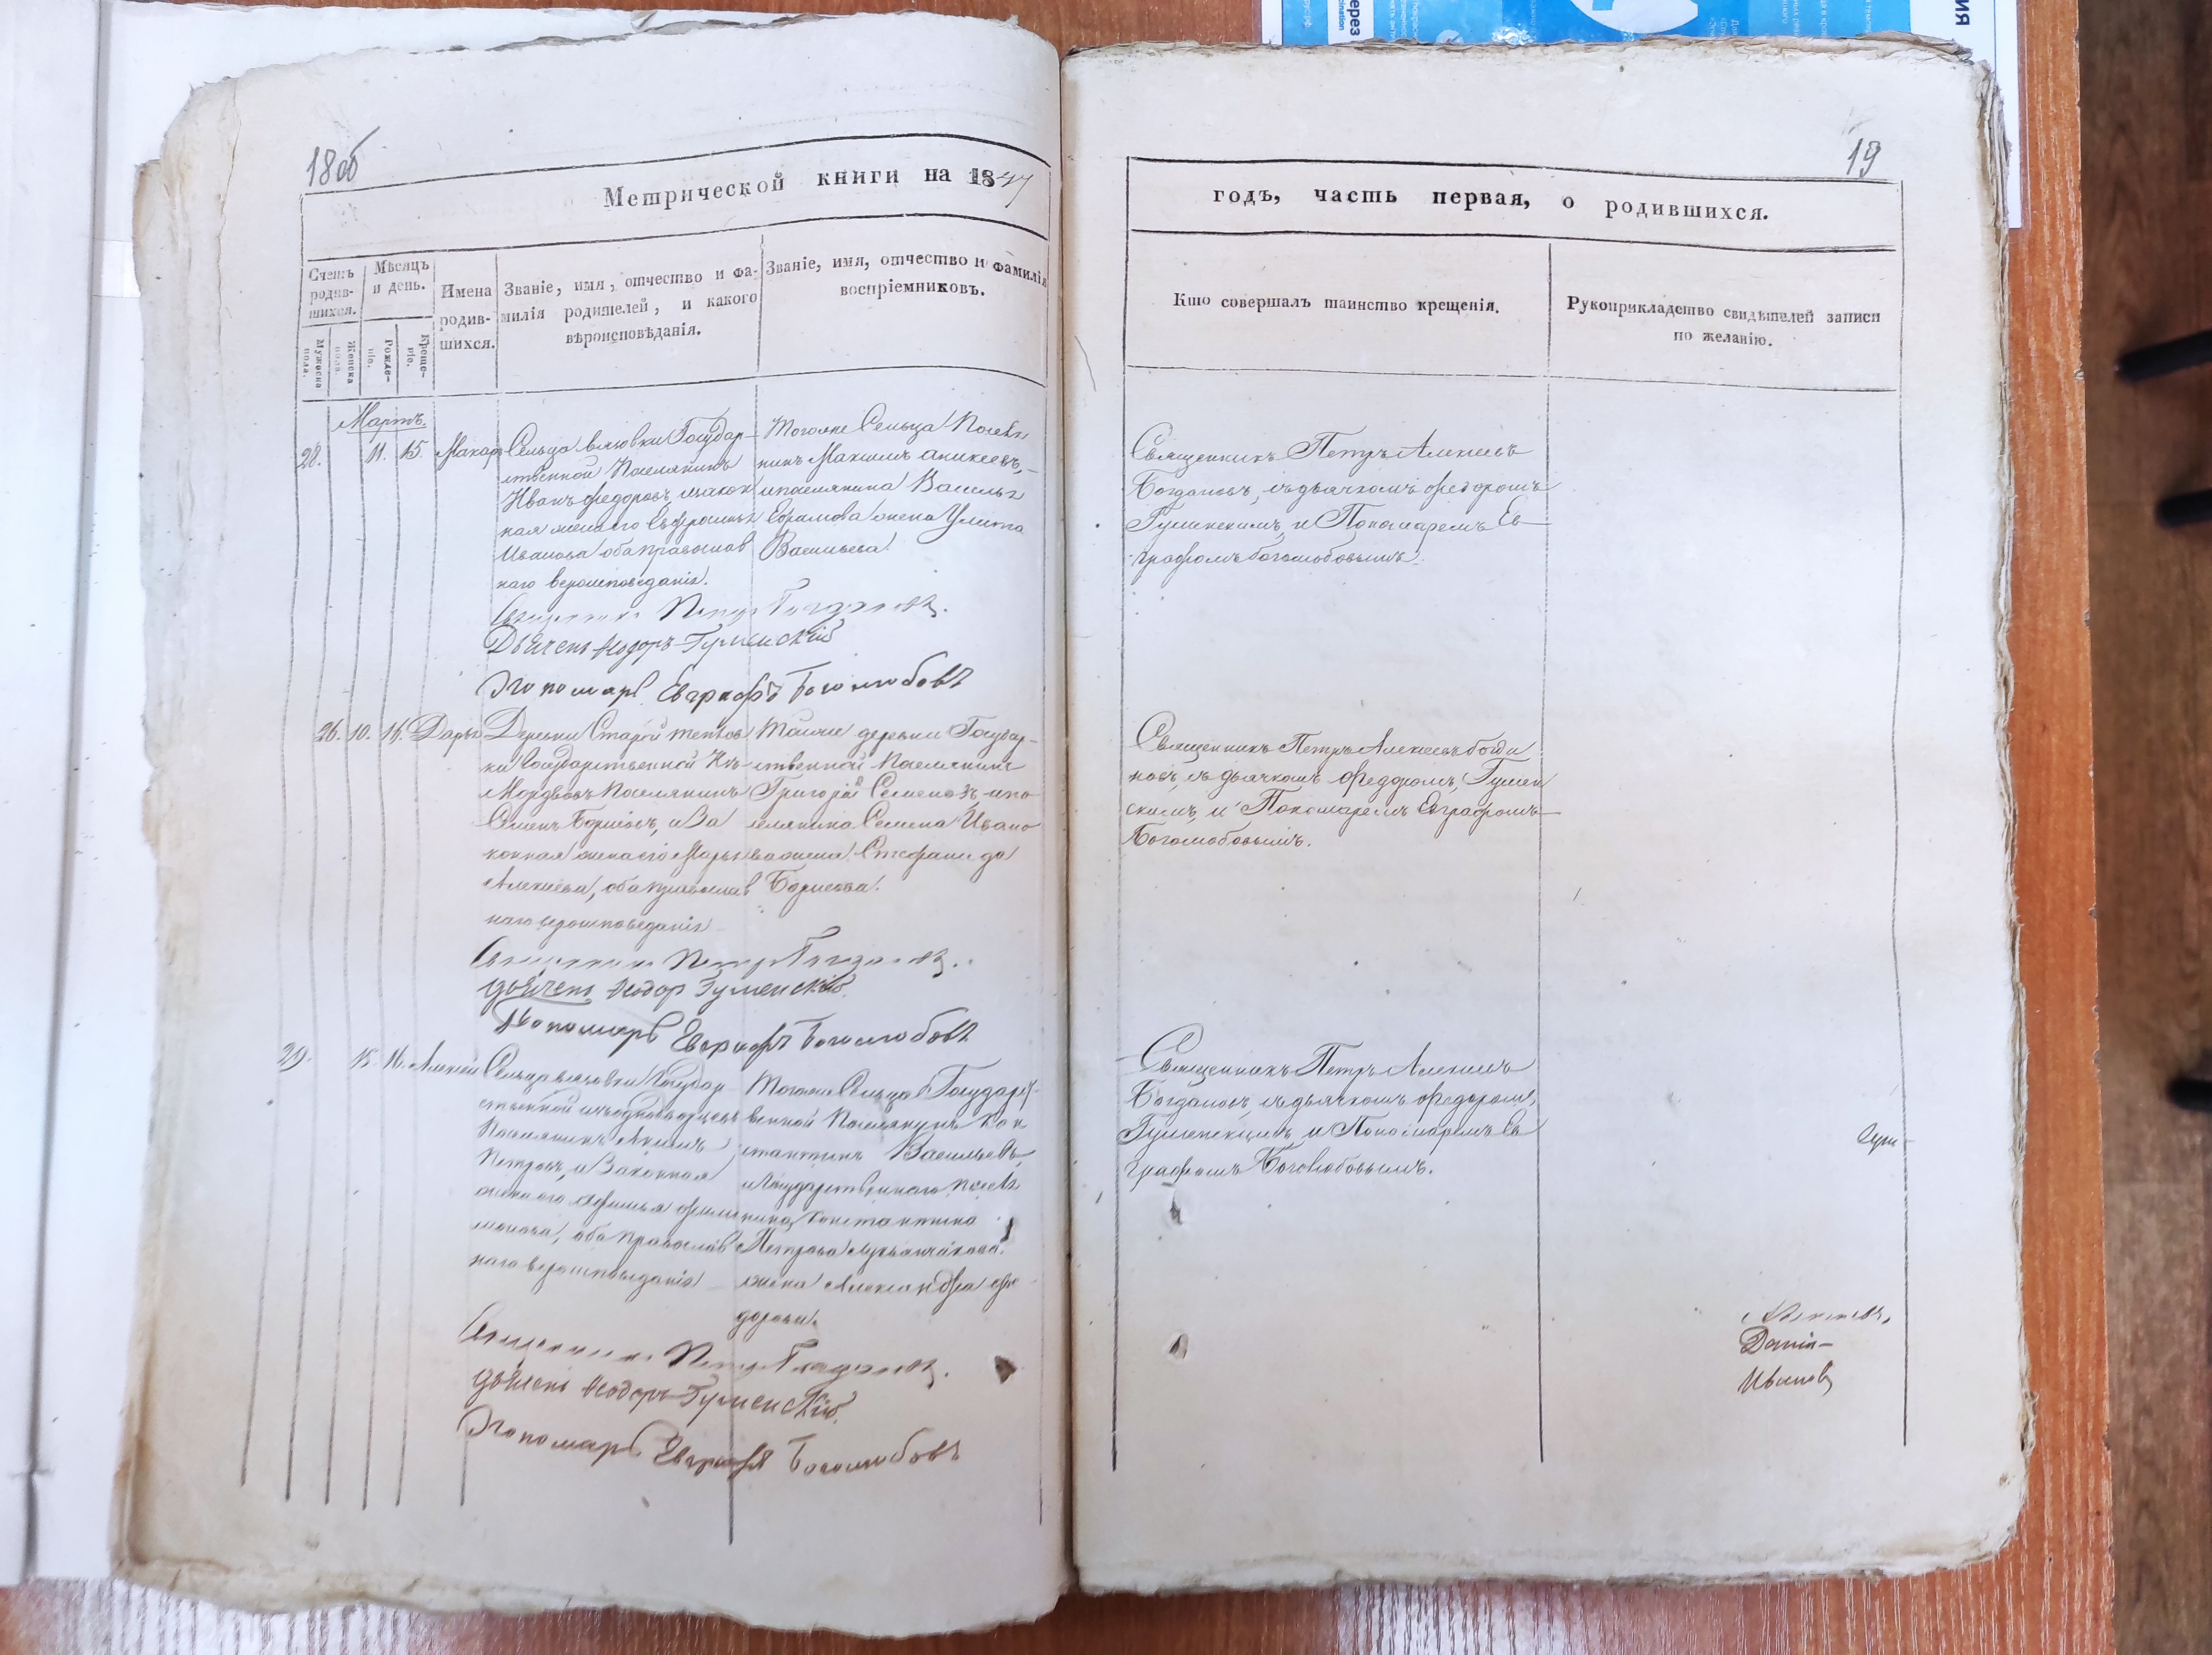 18об
Метрической книги на 1847
Счетъ родив-шихся.
Мѣсяцъ и день.
Мужеска пола.
Женска пола.
Рожде-нiе.
Креще-нiе.
Имена родив-шихся.
Званiе, имя, отчество и фа-
милiя родителей, и какого
вѣроисповѣданiя.
Званiе, имя, отчество и фамилiя
воспрiемниковъ.
Мартъ.
28. 11. 15. Макаръ
Сельца Государ-
ственной Поселянинъ
Иванъ Федоровъ, изакон
ная жена его
Иванова оба православ
наго вероисповеданiя.
Тогоже Сельца Поселя
нинъ Максимъ Аникеевъ,
ипоселянина Василья
Ефремова жена Улита
Васильева.
Священникъ Петръ Богдановъ.
Дьячекъ Федоръ Гуменскiй
Пономарь Евграфъ Боголюбовъ
26. 10. 16. Дарья
Деревни Старой
ки Государственной Изъ
Мордвовъ Поселянинъ
Семенъ Борисовъ, иЗа
конная жена его Марья
Алексеева, оба православ
наго вероисповеданiя
Тойже деревни Государ-
ственной Поселянинъ
Григорiй Семеновъ ипо
селянина Семена Ивано
ва жена Стефанида
Борисова.
Священникъ Петръ Богдановъ.
Дьячекъ Федоръ Гуменскiй.
Пономарь Евграфъ Боголюбовъ
29. 15. 16. Алексей
Сельца Государ
ственной изъоднодворцевъ
Поселянинъ Акимъ
Петровъ, иЗаконная
жена его Афимья Фили
монова, оба православ
наго вероисповеданiя
Тогоже Сельца Государст
венной Поселянинъ Кон
стантинъ Васильевъ,
иГосударственнаго поселя
нина Константина
Петрова
жена Александра Фе
дорова.
Священникъ Петръ Богдановъ.
Дьячекъ Федоръ Гуменскiй.
Пономарь Евграфъ Боголюбовъ
19
годъ, часть первая, о родившихся.
Кто совершалъ таинство крещенiя.
Рукоприкладство свидѣтелей записи
по желанiю.
Священникъ Петръ Алексеевъ
Богдановъ, съдьячкомъ Федоромъ
Гуменскимъ, и Пономаремъ Ев-
графомъ Боголюбовымъ.
Священникъ Петръ Алексеевъ Богда
новъ, съ дьячкомъ Федоромъ, Гумен
скимъ, и Пономаремъ Евграфомъ
Боголюбовымъ.
Священникъ Петръ Алексеевъ
Богдановъ, съдьячкомъ Федоромъ,
Гуменскимъ, и Пономаремъ Ев
графомъ Боголюбовымъ.